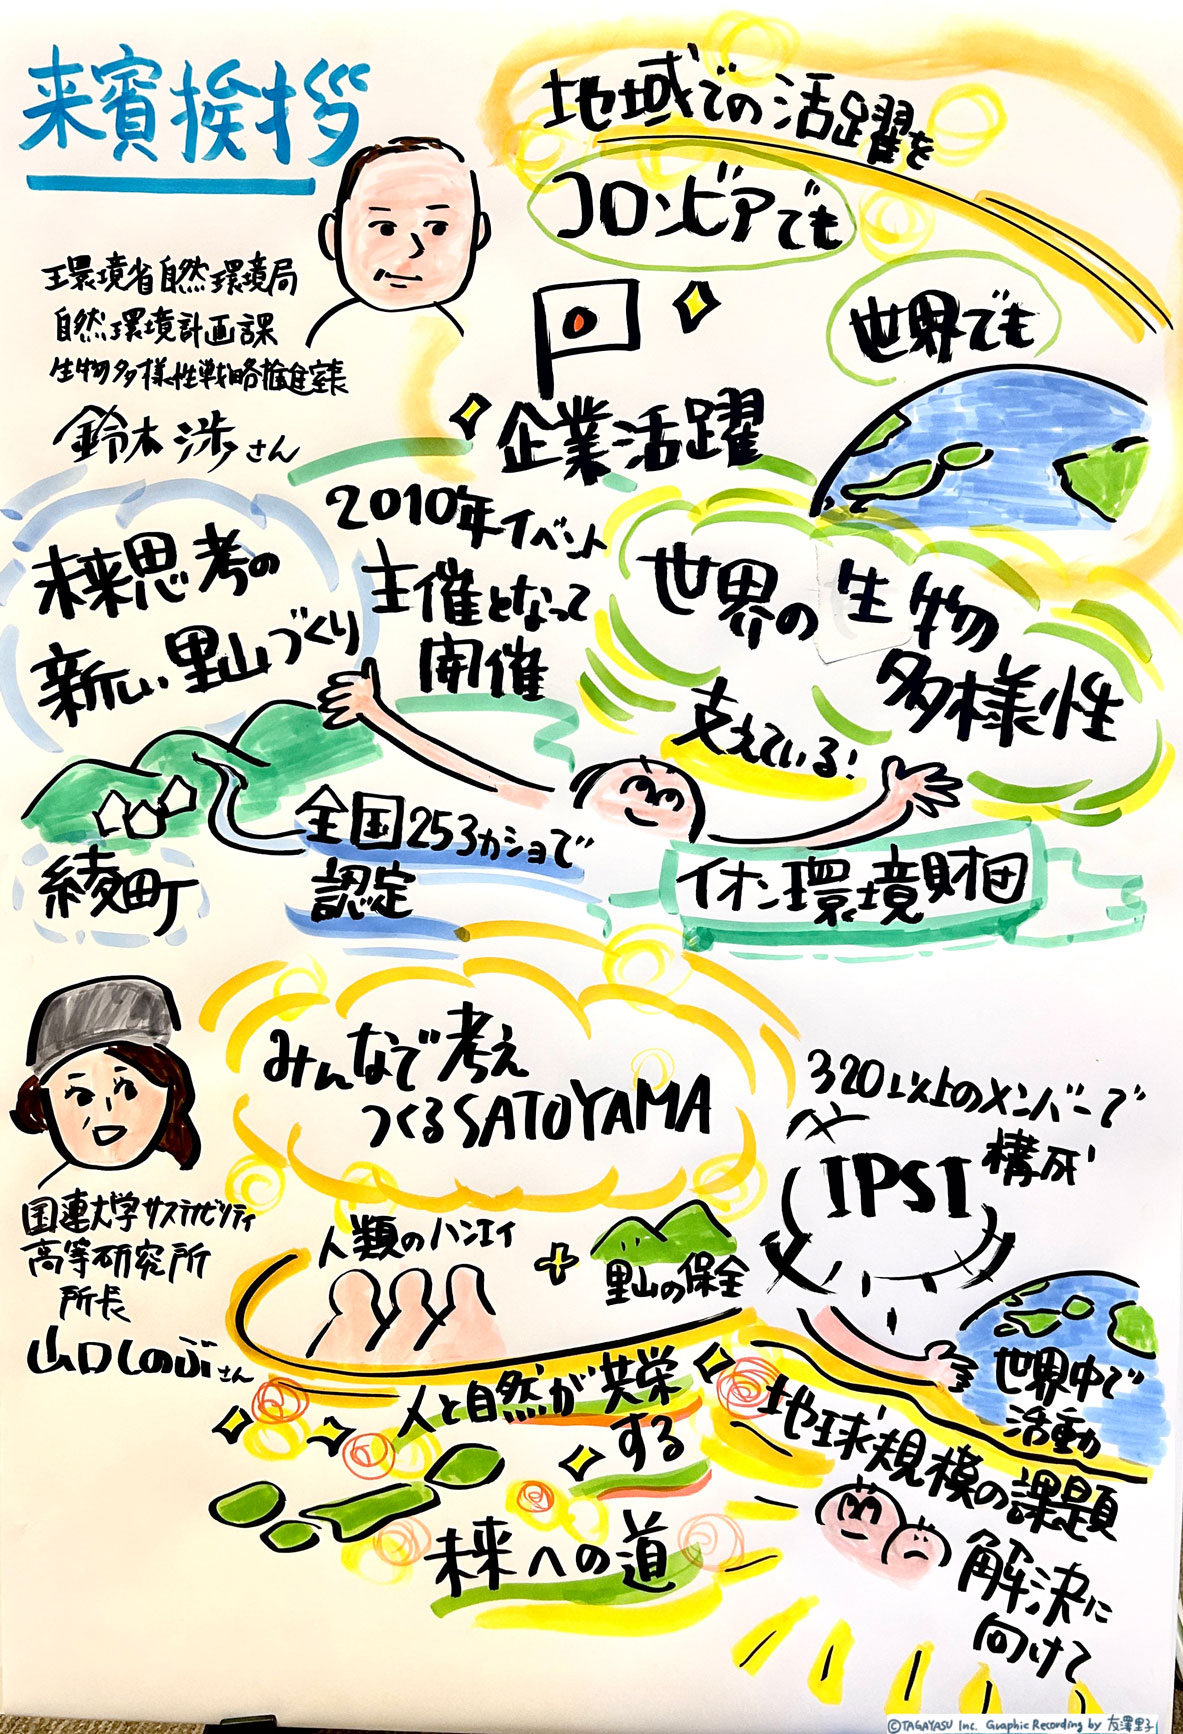 来賓挨拶
環境省自然環境局
自然環境計画課
生物多様性戦略推進室長
鈴木渉さん
地域での活躍を
コロンビアでも
世界でも
企業活躍
未来思考の
新しい里山づくり
綾町
2010年イベント
主催となって
開催
全国253カショで
認定
世界の生物
多様性
支えている!
イオン環境財団
国連大学サステイナビリティ
高等研究所
所長
山口しのぶさん
みんなで考え
つくるSATOYAMA
人類のハンエイ
里山の保全
人と自然が共栄
する
未来への道
320以上のメンバーで
構成
IPSI
世界中で
活動
地球規模の課題
解決に
向けて
©TAGAYASU Inc. Graphic Recording by 友澤里子